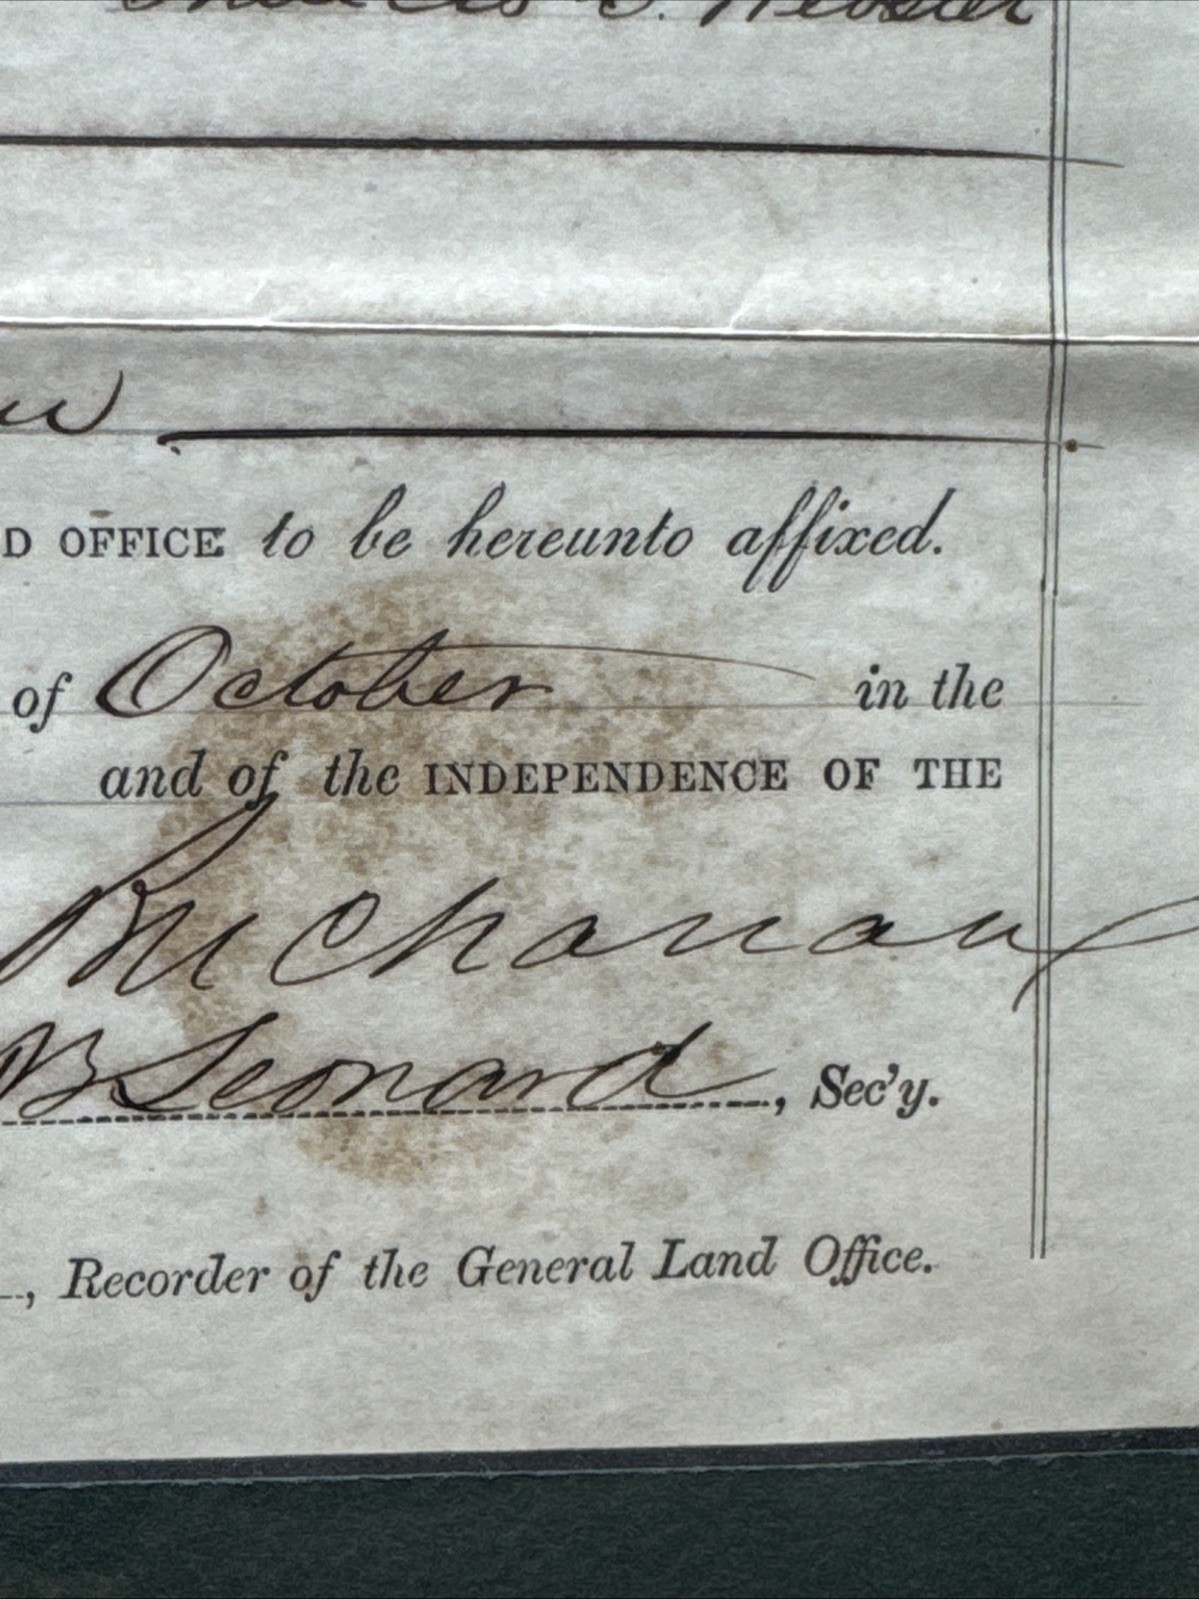 Webster
D OFFICE to be hereunto affixed.
of October in the
and of the INDEPENDENCE OF THE
Buchanan
B Leonard, Sec'y.
, Recorder of the General Land Office.